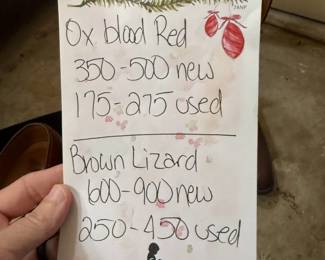 Ox blood Red
350-500 new
175-275 used
Brown Lizard
600-900 new
250-450 used